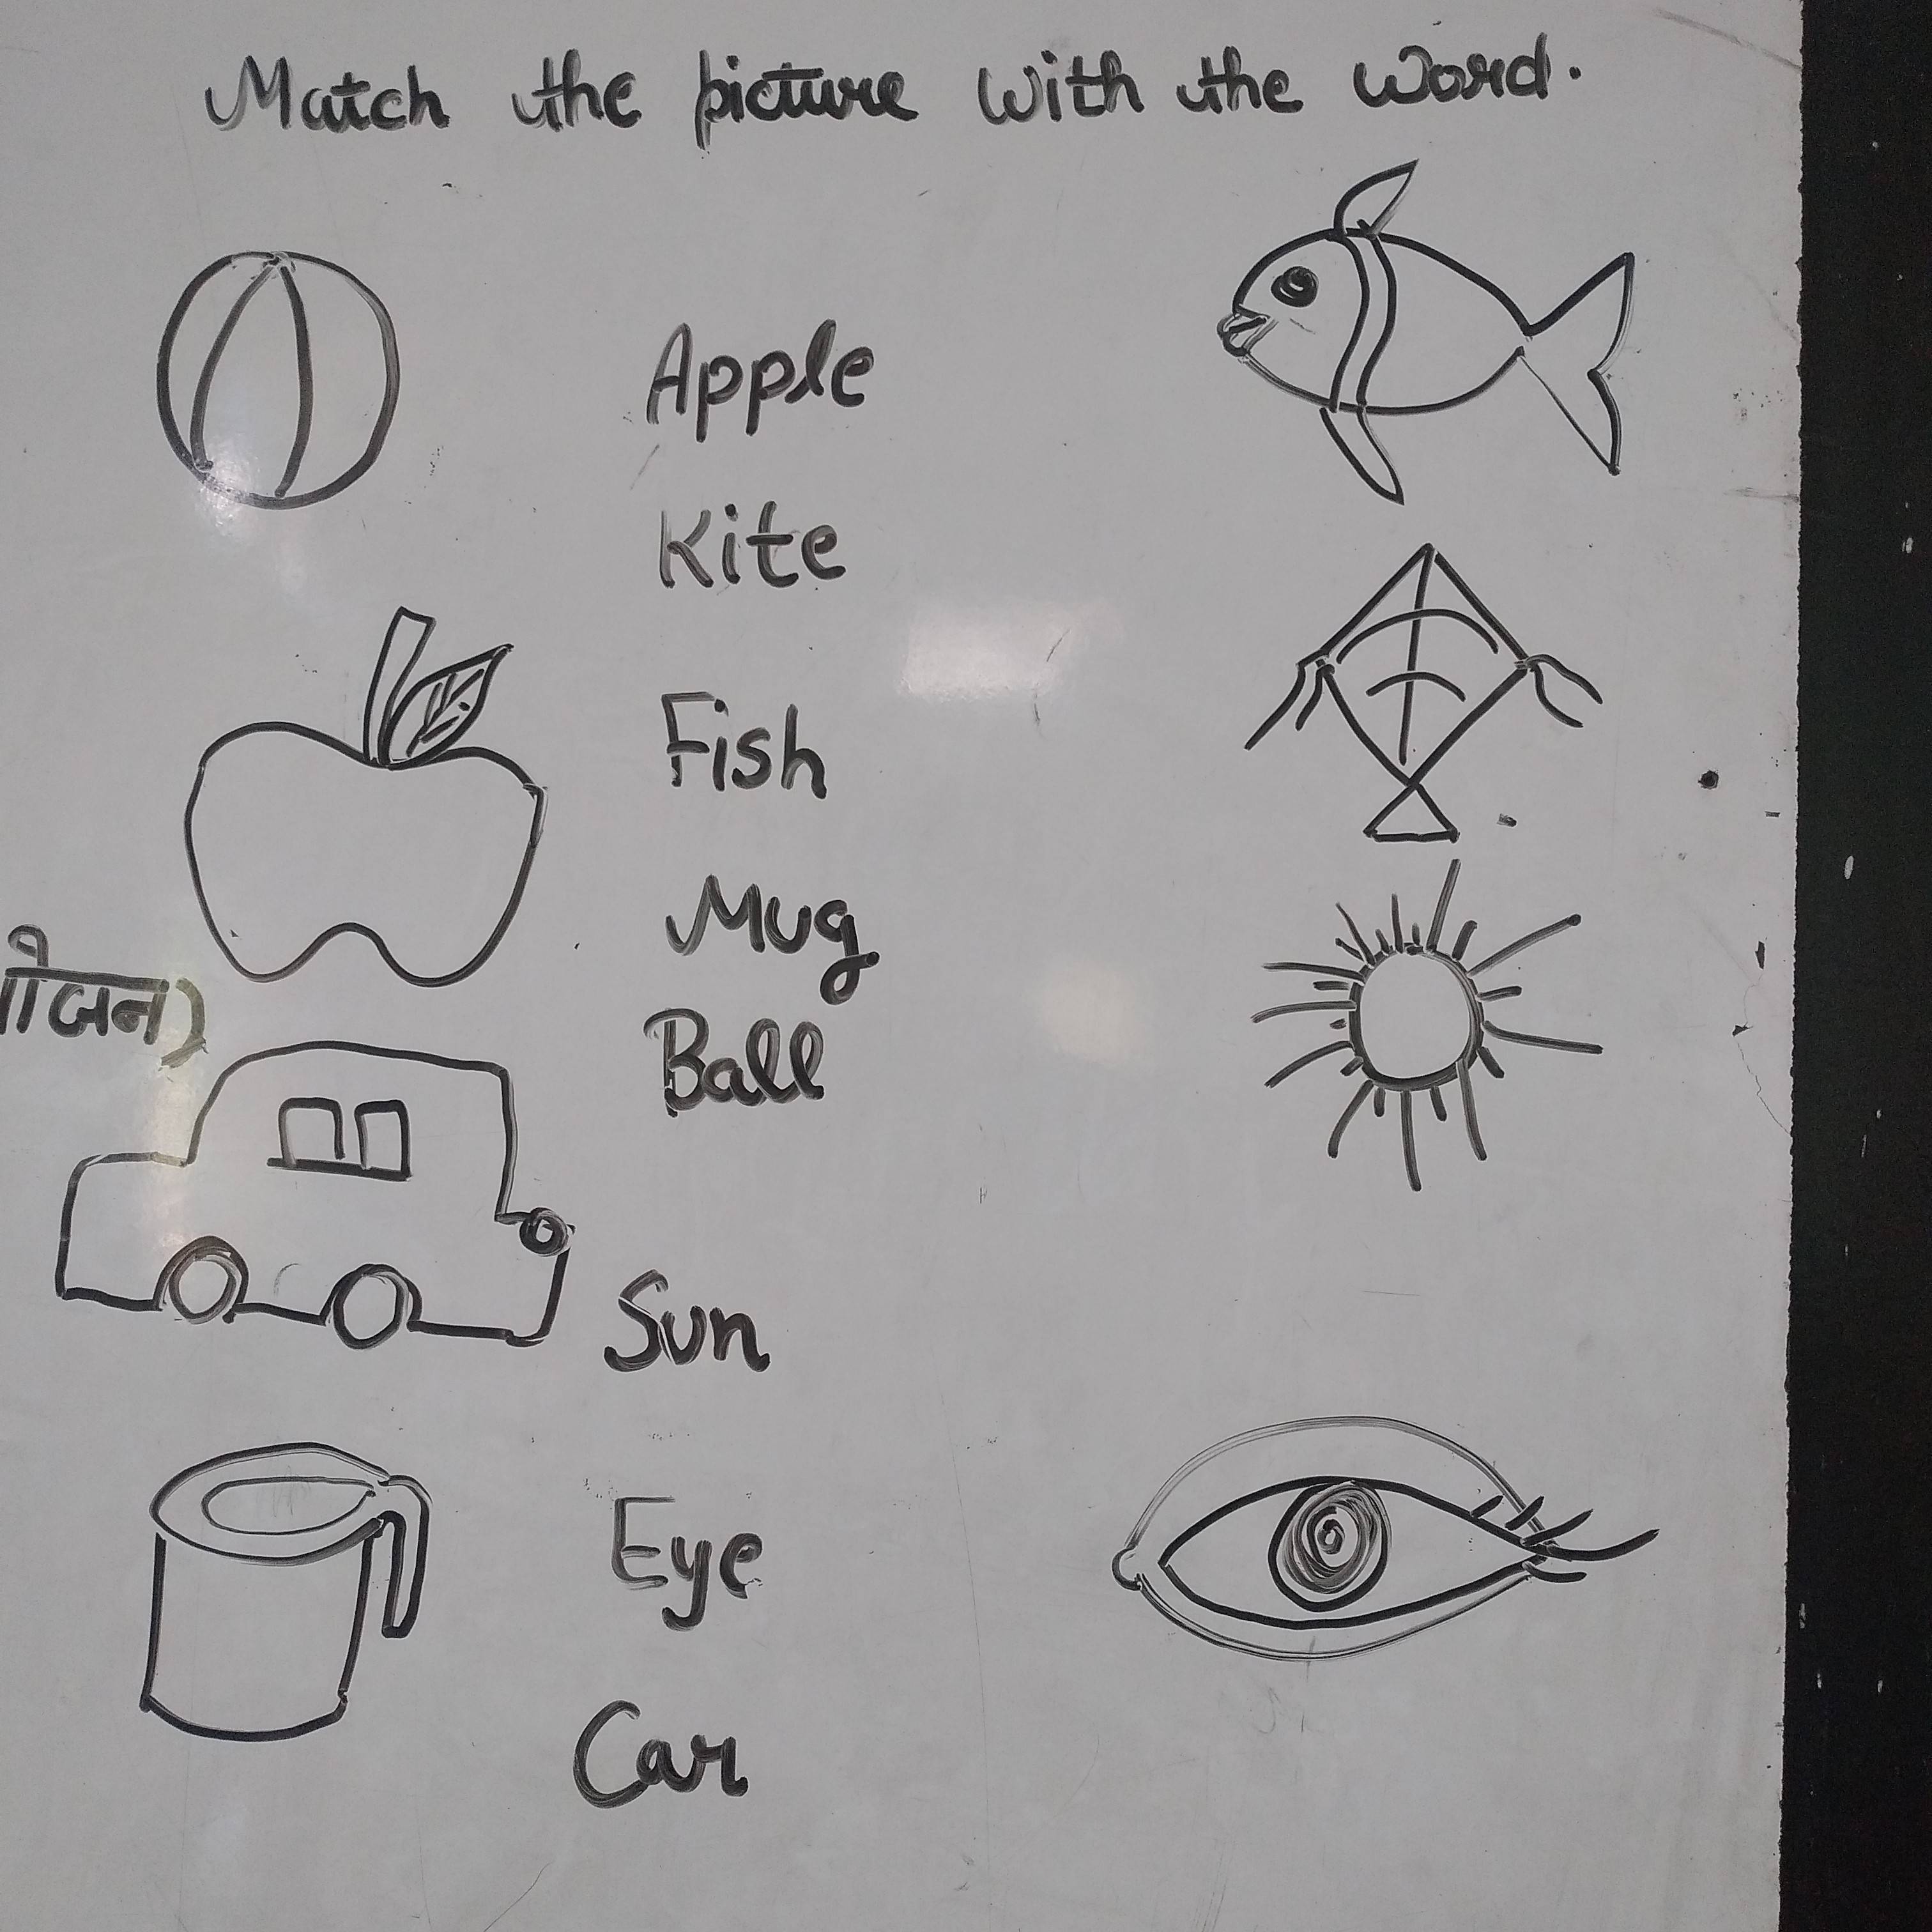 Match the picture with the word.
Apple
Kite
Fish
Mug
ोजन)
Ball
Sun
Eye
Car